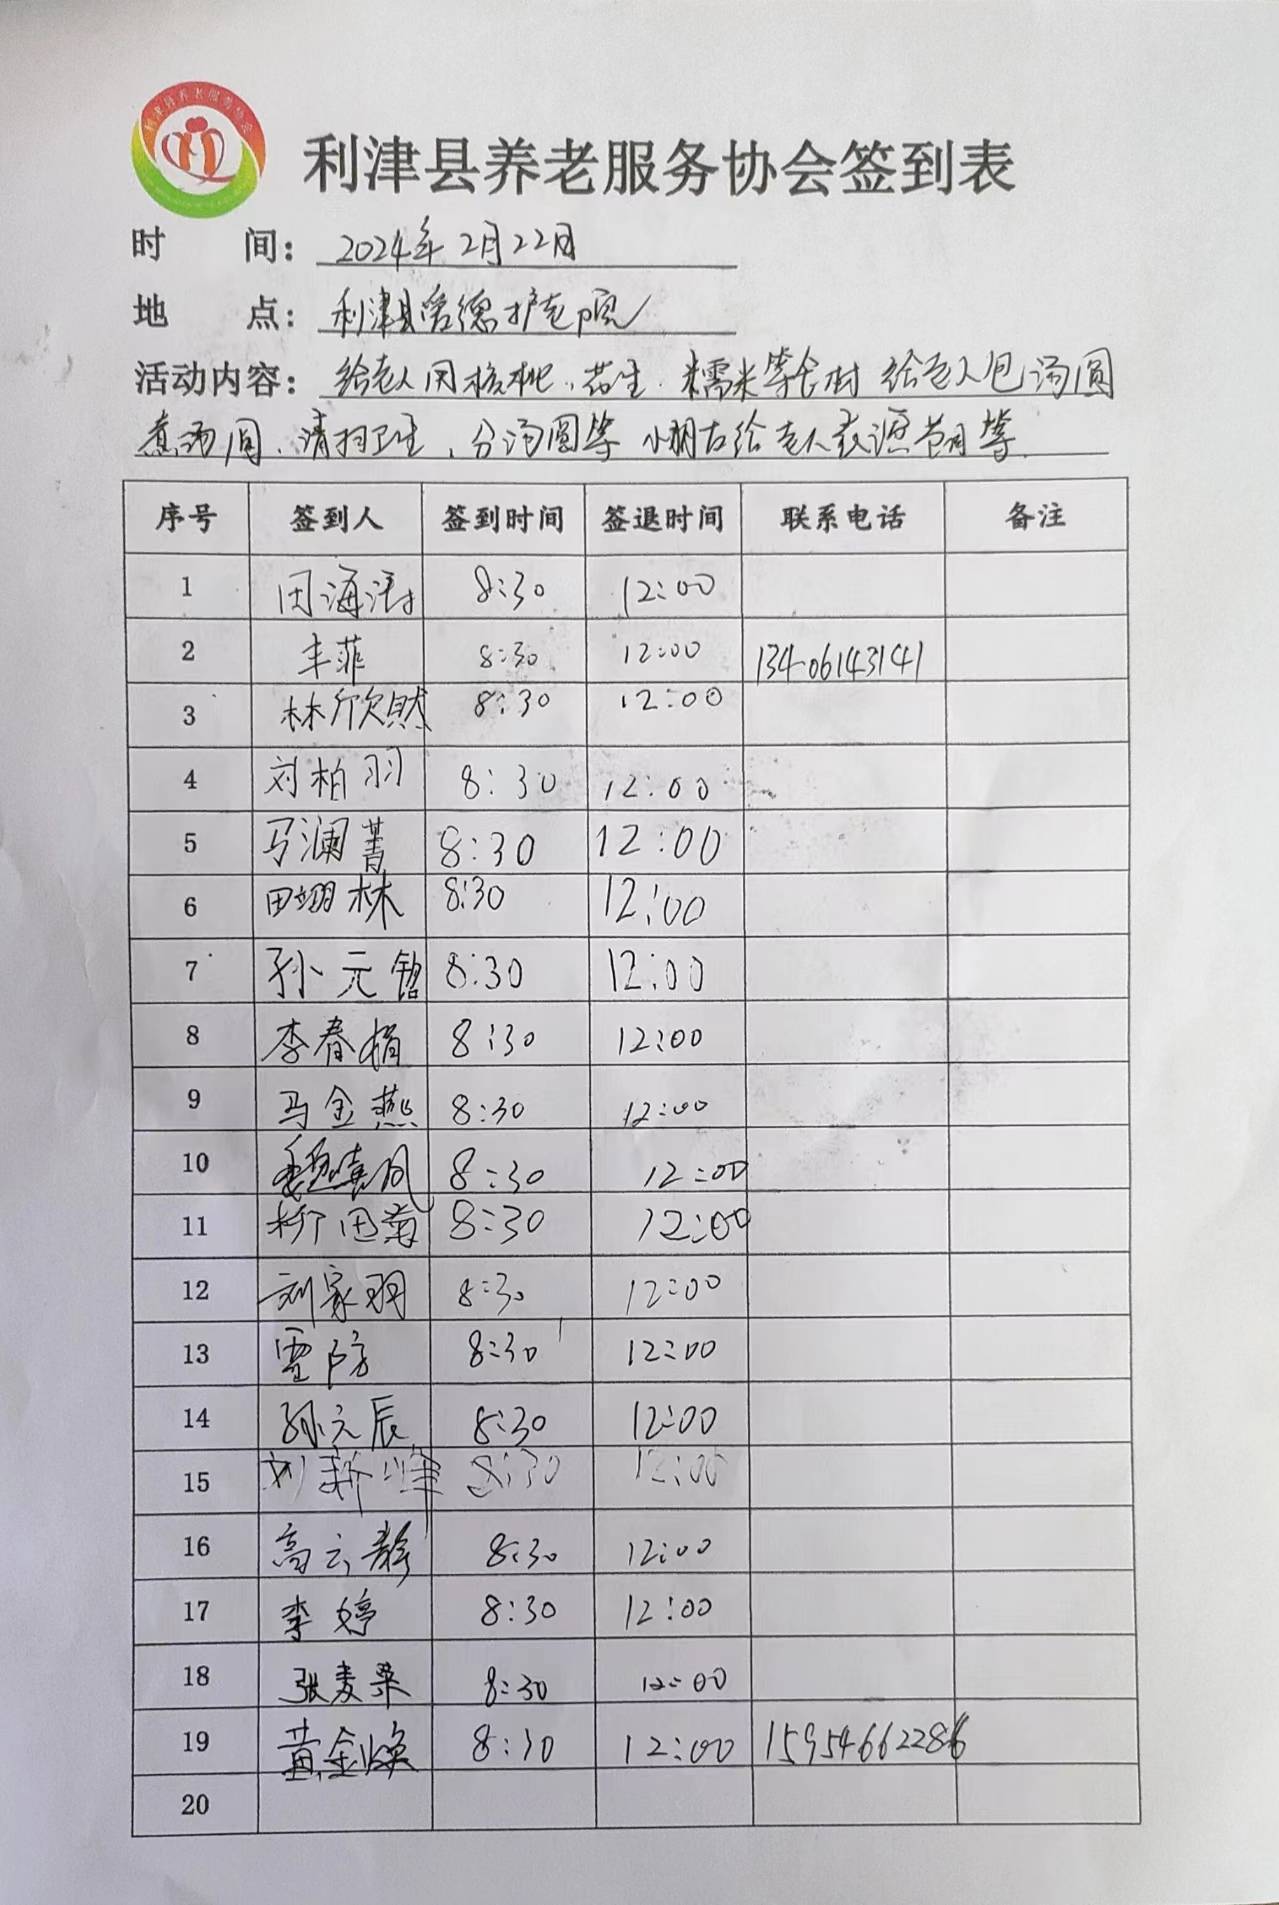 利津县养老服务协会
利津县养老服务协会签到表
时 间：2024年2月22日
地 点：利津县爱德护老院
活动内容：给老人用核桃、花生、糯米等食材 给老人包汤圆
煮汤圆、清扫卫生、分汤圆等 小朋友给老人表演节目等
序号 签到人 签到时间 签退时间 联系电话 备注
1 田海涛 8:30 12:00
2 丰菲 8:30 12:00 13406143141
3 林欣然 8:30 12:00
4 刘柏羽 8:30 12:00
5 马澜菁 8:30 12:00
6 田翊林 8:30 12:00
7 孙元铭 8:30 12:00
8 李春梅 8:30 12:00
9 马金燕 8:30 12:00
10 8:30 12:00
11 柳田菊 8:30 12:00
12 刘家羽 8:30 12:00
13 8:30 12:00
14 孙元辰 8:30 12:00
15 刘新峰 8:30 12:00
16 高云静 8:30 12:00
17 李婷 8:30 12:00
18 张麦朵 8:30 12:00
19 黄金焕 8:30 12:00 15954662286
20